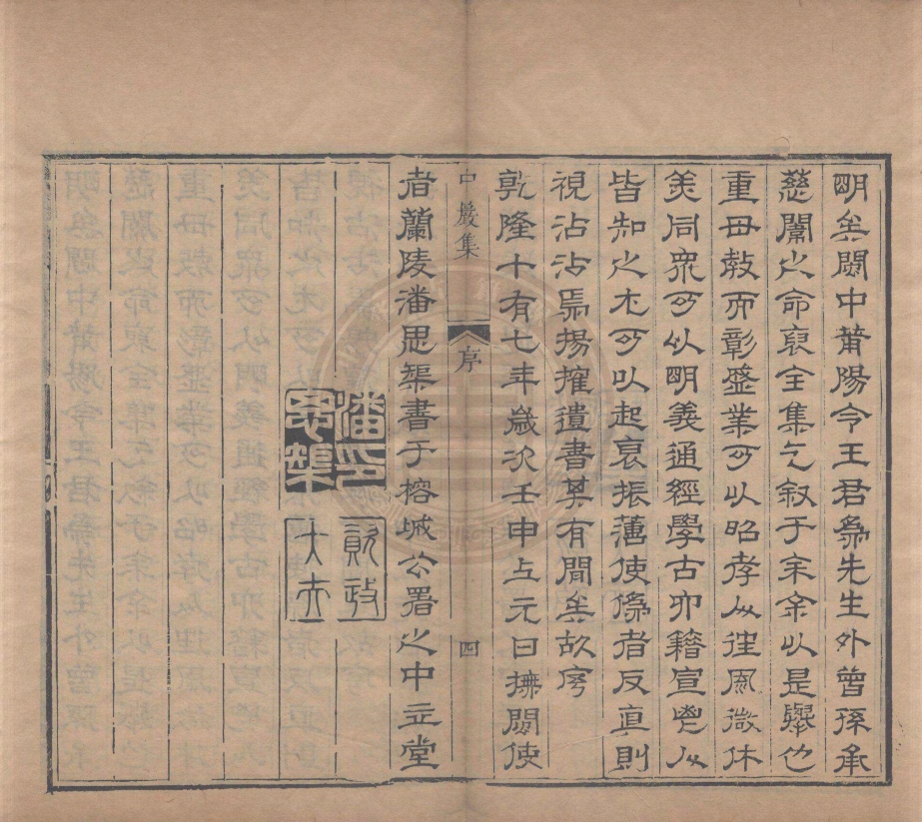 明矣閩中莆陽令王君為先生外曾孫承
慈闈之命裒全集乞叙于余余以是舉也
重母教而彰盛業可以昭孝公從風微休
美同衆可以明義通經學古而籍宣
皆知之尤可以起衰振薄使偽者反真則
視沾沾焉揚搉遺書其有閒矣故序
乾隆十有七年歲次壬申上元日撫閩使
者蘭陵潘思榘書于榕城公署之中立堂
中巖集
序
四
潘思榘印
大夫